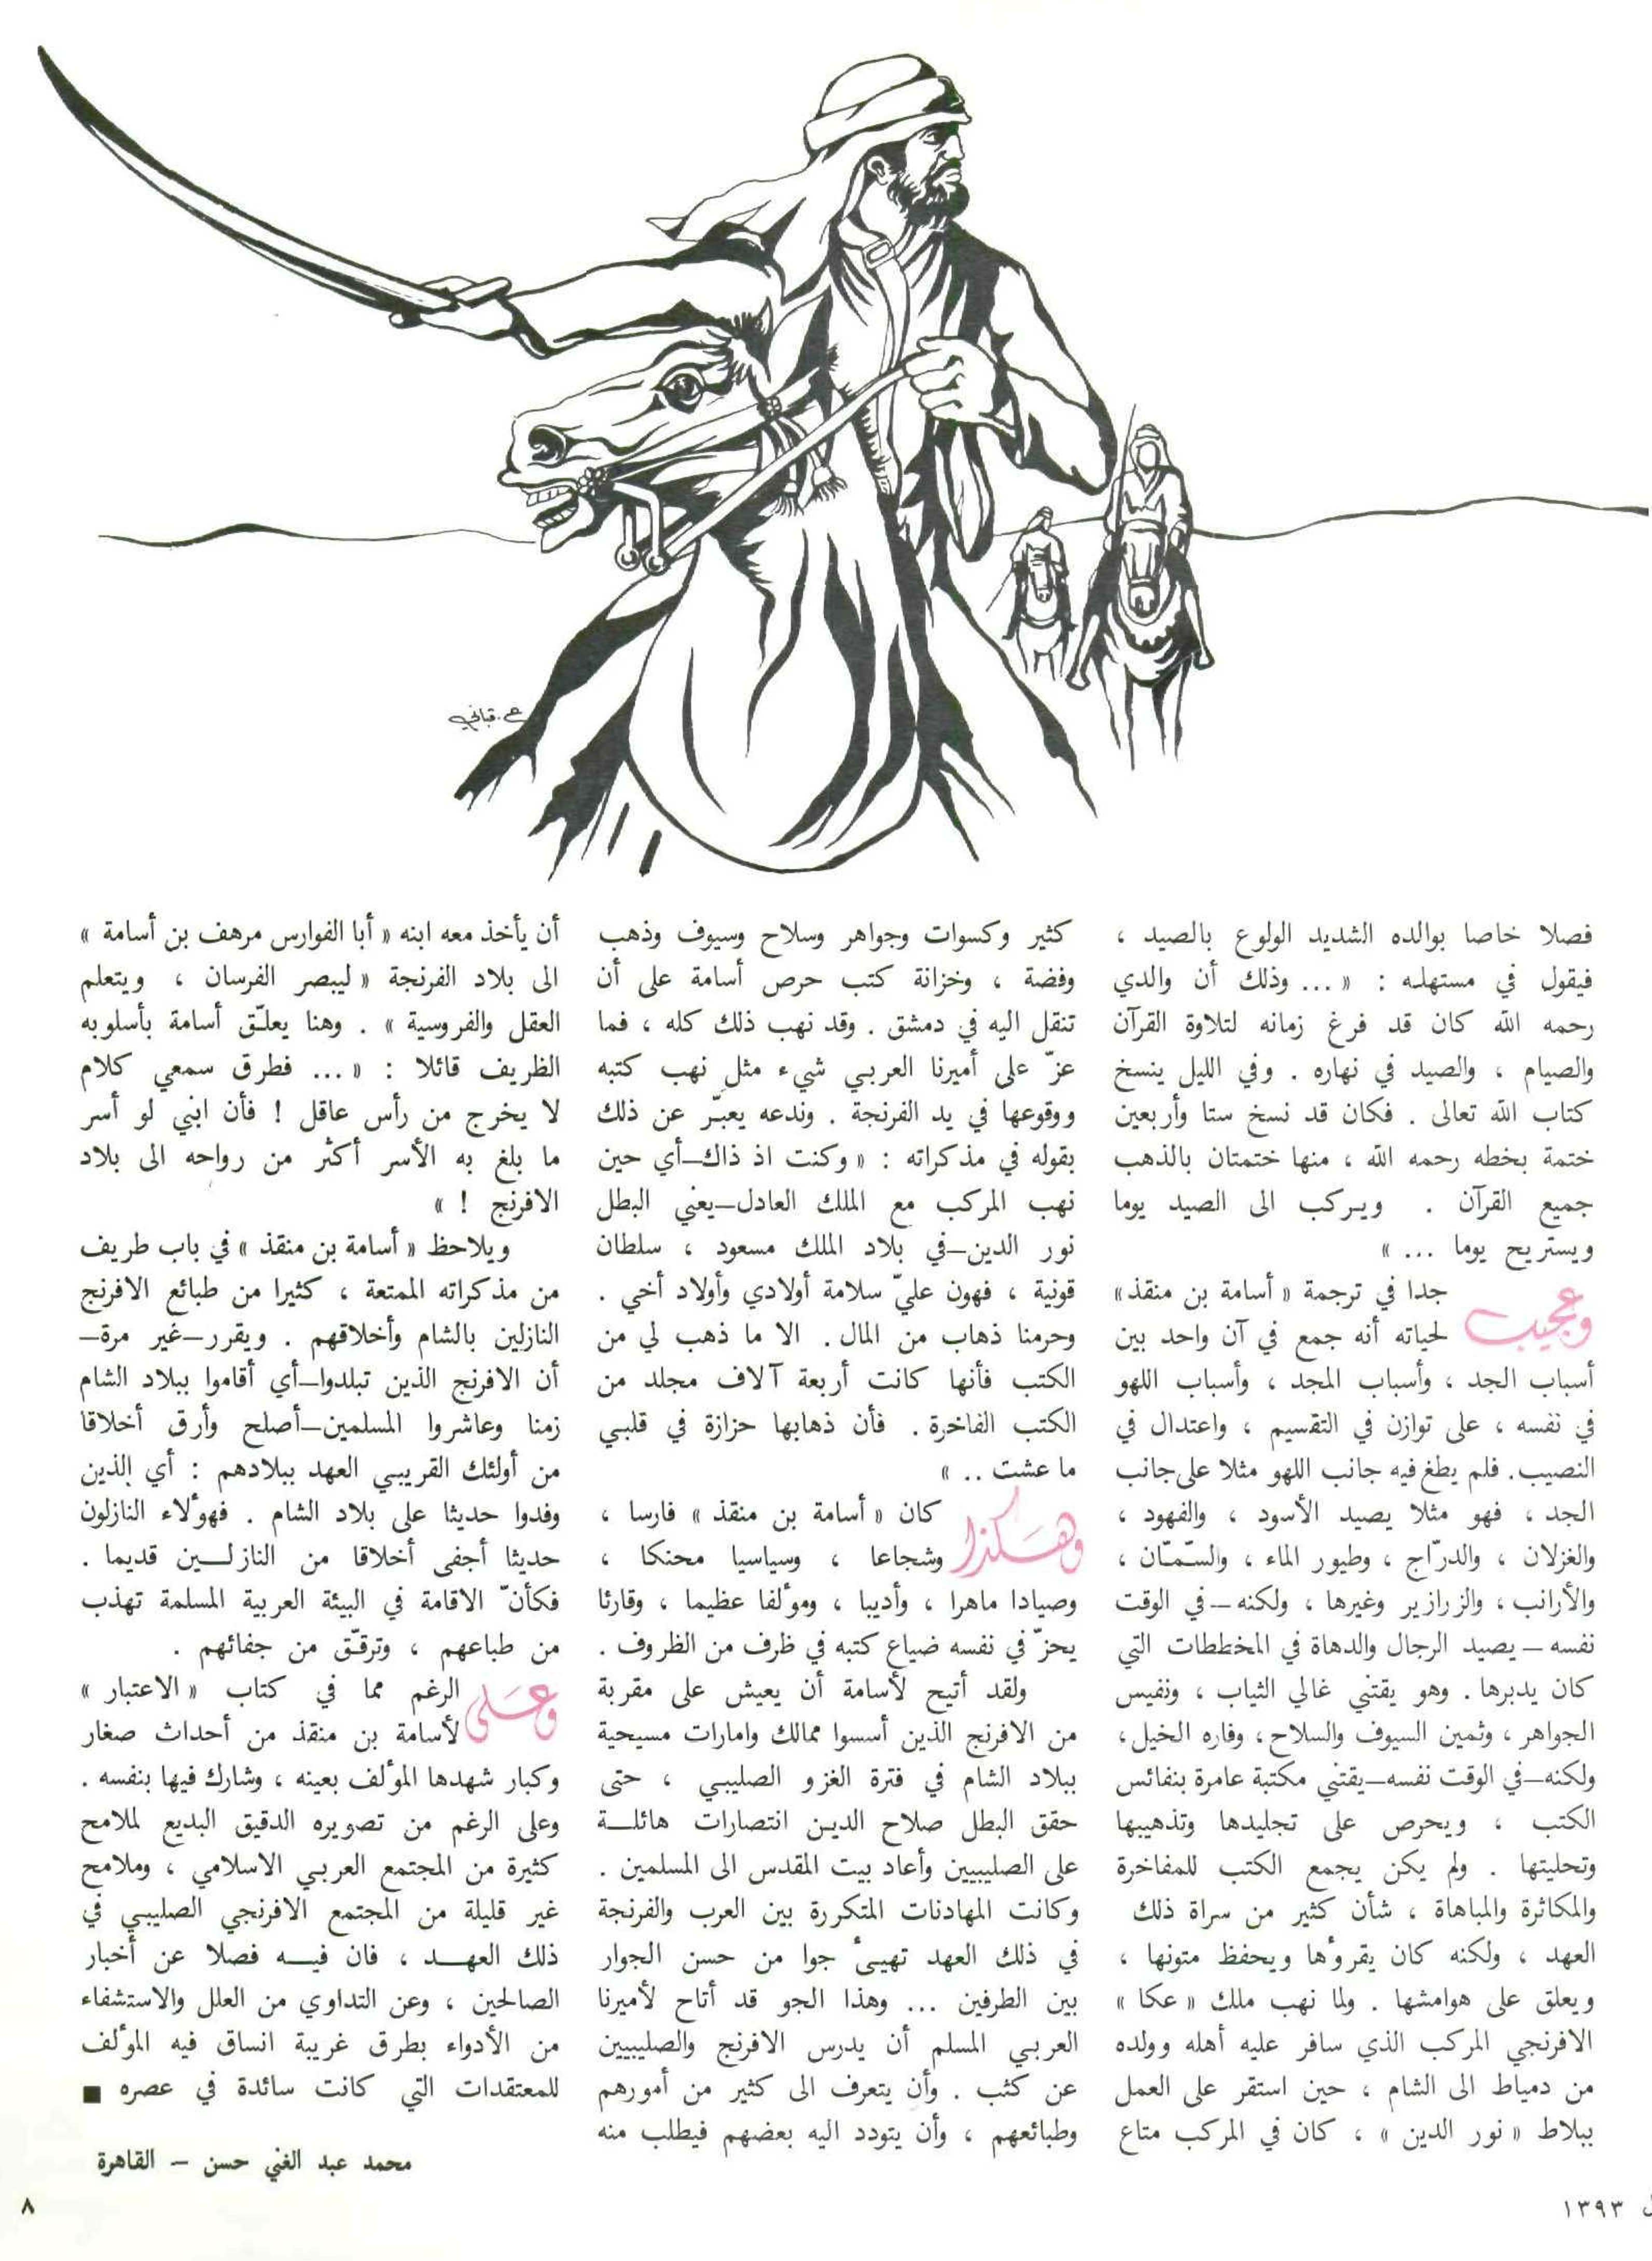 ع. قباني
فصلا خاصا بوالده الشديد الولوع بالصيد ،
فيقول في مستهله : « ... وذلك أن والدي
رحمه الله كان قد فرغ زمانه لتلاوة القرآن
والصيام ، والصيد في نهاره . وفي الليل ينسخ
كتاب الله تعالى . فكان قد نسخ ستا وأربعين
ختمة بخطه رحمه الله ، منها ختمتان بالذهب
جميع القرآن . ويركب الى الصيد يوما
ويستريح يوما ... »
وعجيب جدا في ترجمة « أسامة بن منقذ»
لحياته أنه جمع في آن واحد بين
أسباب الجد ، وأسباب المجد ، وأسباب اللهو
في نفسه ، على توازن في التقسيم ، واعتدال في
النصيب. فلم يطغ فيه جانب اللهو مثلا على جانب
الجد ، فهو مثلا يصيد الأسود ، والفهود ،
والغزلان ، والدرّاج ، وطيور الماء ، والسّمّان ،
والأرانب ، والزرازير وغيرها ، ولكنه – في الوقت
نفسه – يصيد الرجال والدهاة في المخططات التي
كان يدبرها . وهو يقتني غالي الثياب ، ونفيس
الجواهر ، وثمين السيوف والسلاح ، وفاره الخيل ،
ولكنه–في الوقت نفسه–يقتني مكتبة عامرة بنفائس
الكتب ، ويحرص على تجليدها وتذهيبها
وتحليتها . ولم يكن يجمع الكتب للمفاخرة
والمكاثرة والمباهاة ، شأن كثير من سراة ذلك
العهد ، ولكنه كان يقرؤها ويحفظ متونها ،
ويعلق على هوامشها . ولما نهب ملك « عكا »
الافرنجي المركب الذي سافر عليه أهله وولده
من دمياط الى الشام ، حين استقر على العمل
ببلاط « نور الدين » ، كان في المركب متاع
كثير وكسوات وجواهر وسلاح وسيوف وذهب
وفضة ، وخزانة كتب حرص أسامة على أن
تنقل اليه في دمشق . وقد نهب ذلك كله ، فما
عزّ على أميرنا العربي شيء مثل نهب كتبه
ووقوعها في يد الفرنجة . وندعه يعبّر عن ذلك
بقوله في مذكراته : « وكنت اذ ذاك–أي حين
نهب المركب مع الملك العادل–يعني البطل
نور الدين–في بلاد الملك مسعود ، سلطان
قونية ، فهون عليّ سلامة أولادي وأولاد أخي .
وحرمنا ذهاب من المال. الا ما ذهب لي من
الكتب فأنها كانت أربعة آلاف مجلد من
الكتب الفاخرة . فأن ذهابها حزازة في قلبي
ما عشت .. »
وهكذا كان « أسامة بن منقذ » فارسا ،
وشجاعا ، وسياسيا محنكا ،
وصيادا ماهرا ، وأديبا ، ومؤلفا عظيما ، وقارئا
يحزّ في نفسه ضياع كتبه في ظرف من الظروف .
ولقد أتيح لأسامة أن يعيش على مقربة
من الافرنج الذين أسسوا ممالك وامارات مسيحية
ببلاد الشام في فترة الغزو الصليبي ، حتى
حقق البطل صلاح الدين انتصارات هائلة
على الصليبيين وأعاد بيت المقدس الى المسلمين .
وكانت المهادنات المتكررة بين العرب والفرنجة
في ذلك العهد تهيئ جوا من حسن الجوار
بين الطرفين ... وهذا الجو قد أتاح لأميرنا
العربي المسلم أن يدرس الافرنج والصليبيين
عن كثب . وأن يتعرف الى كثير من أمورهم
وطبائعهم ، وأن يتودد اليه بعضهم فيطلب منه
أن يأخذ معه ابنه « أبا الفوارس مرهف بن أسامة »
الى بلاد الفرنجة « ليبصر الفرسان ، ويتعلم
العقل والفروسية » . وهنا يعلّق أسامة بأسلوبه
الظريف قائلا : « ... فطرق سمعي كلام
لا يخرج من رأس عاقل ! فأن ابني لو أسر
ما بلغ به الأسر أكثر من رواحه الى بلاد
الافرنج ! »
ويلاحظ « أسامة بن منقذ » في باب طريف
من مذكراته الممتعة ، كثيرا من طبائع الافرنج
النازلين بالشام وأخلاقهم . ويقرر–غير مرة–
أن الافرنج الذين تبلدوا–أي أقاموا ببلاد الشام
زمنا وعاشروا المسلمين–أصلح وأرق أخلاقا
من أولئك القريبي العهد ببلادهم : أي الذين
وفدوا حديثا على بلاد الشام . فهؤلاء النازلون
حديثا أجفى أخلاقا من النازلين قديما .
فكأنّ الاقامة في البيئة العربية المسلمة تهذب
من طباعهم ، وترقّق من جفائهم .
وعلى الرغم مما في كتاب « الاعتبار »
لأسامة بن منقذ من أحداث صغار
وكبار شهدها المؤلف بعينه ، وشارك فيها بنفسه .
وعلى الرغم من تصويره الدقيق البديع لملامح
كثيرة من المجتمع العربي الاسلامي ، وملامح
غير قليلة من المجتمع الافرنجي الصليبي في
ذلك العهد ، فان فيه فصلا عن أخبار
الصالحين ، وعن التداوي من العلل والاستشفاء
من الأدواء بطرق غريبة انساق فيه المؤلف
للمعتقدات التي كانت سائدة في عصره ■
محمد عبد الغني حسن – القاهرة
١٣٩٣
٨